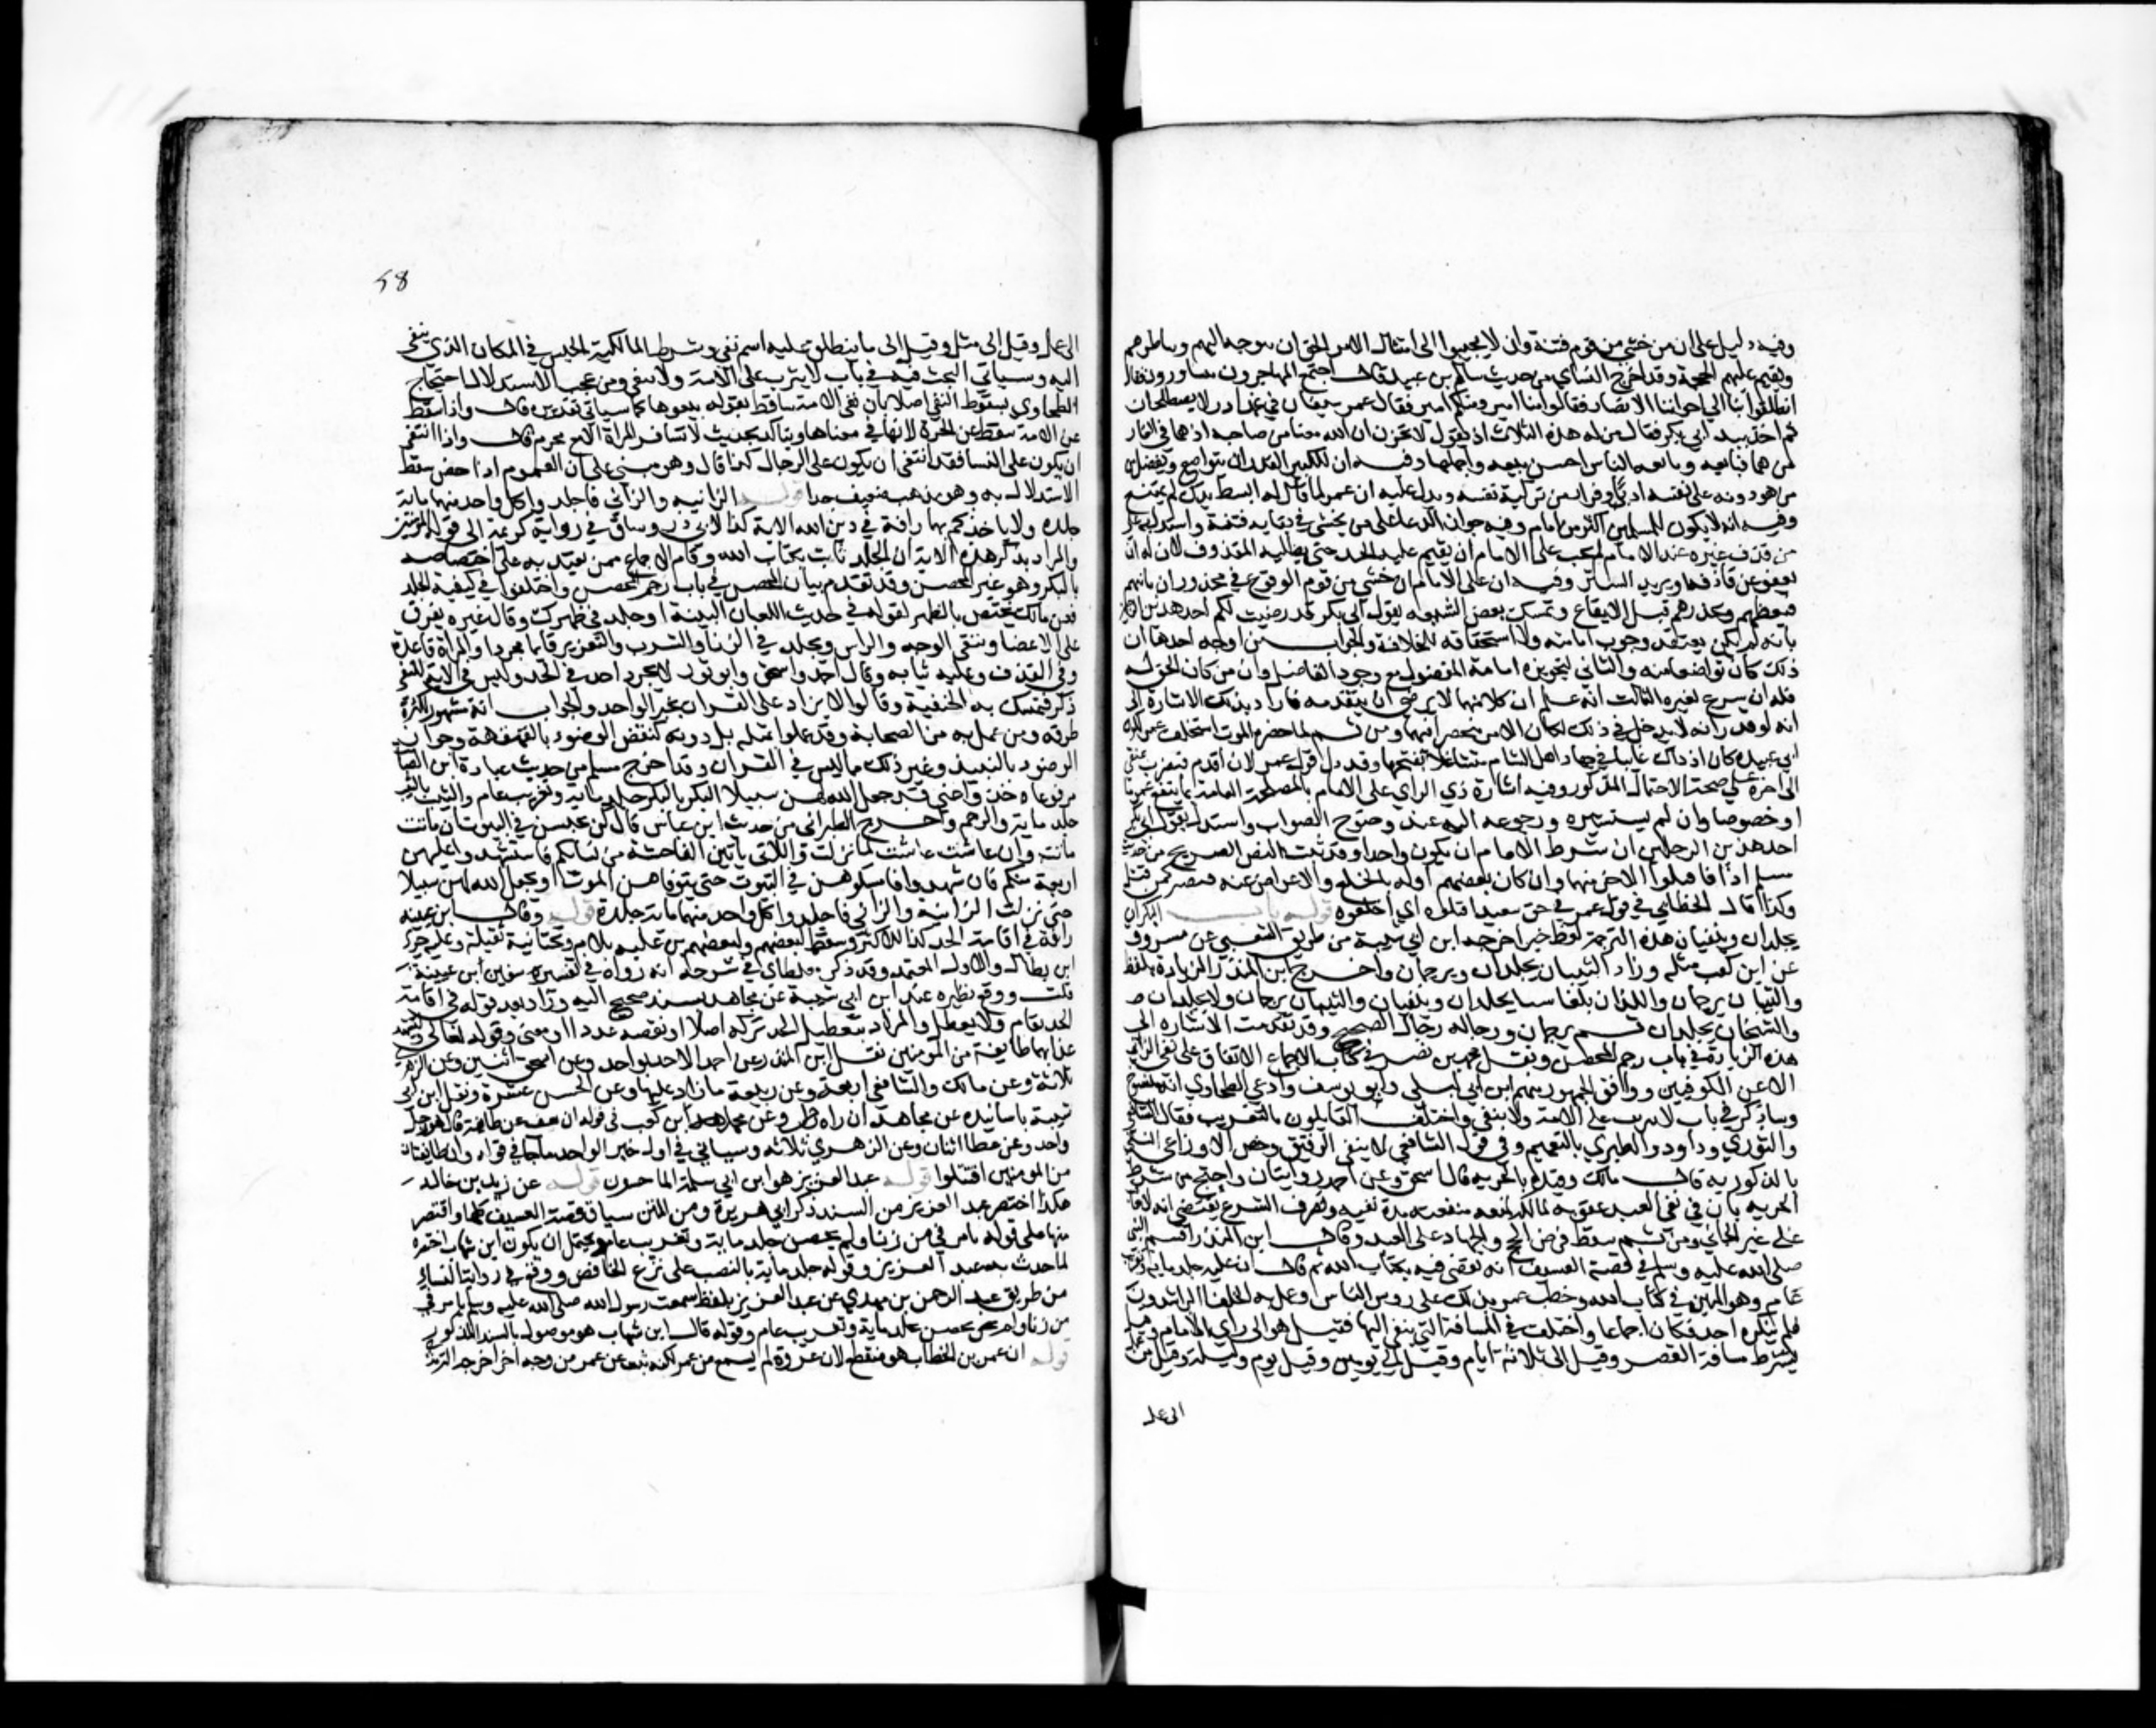 وفيه دليل على ان من خشي من قوم فتنة وان لا يجيبوا الى امتثال الامر الحق ان يتوجه اليهم ويناظرهم
ويقيم عليهم الحجة وقد اخرج النساي من حديث سالم بن عبيد قال اجتمع المهاجرون يتشاورون فقالوا
انطلقوا بنا الى اخواننا الانصار فقالوا منا امير ومنكم امير فقال عمر سيفان في غمد اذن لا يصطلحان
ثم اخذ بيد ابي بكر فقال من له هذه الثلاث اذ يقول لا تحزن ان الله معنا من صاحبه اذ هما في الغار
من هما فبايعه وبايعه الناس احسن بيعة واجملها وفيه ان للكبير القدر ان يتواضع ويفضل
من هو دونه على نفسه ادبا وفرارا من تزكية نفسه ويدل عليه ان عمر لما قال له ابسط يدك لم يمتنع
وفيه انه لا يكون للمسلمين اكثر من امام وفيه جواز الدعا على من يخشى في بقايه فتنة واستدل به على
من قذف غيره عند الامام لم يجب على الامام ان يقيم عليه الحد حتى يطلبه المقذوف لان له ان
يعفو عن قاذفه او يريد الستر وفيه ان على الامام ان خشي من قوم الوقوع في محذور ان ياتيهم
فيعظهم ويحذرهم قبل الايقاع وتمسك بعض الشيعة بقول ابي بكر قد رضيت لكم احد هذين الرجلين
بانه لم يكن يعتقد وجوب امامته ولا استحقاقه للخلافة والجواب من اوجه احدها ان
ذلك كان تواضعا منه والثاني لتجويزه امامة المفضول مع وجود الفاضل وان من كان الحق له
فله ان يتبرع لغيره الثالث انه علم ان كلا منهما لا يرضى ان يتقدمه فاراد بذلك الاشارة الى
انه لو قدر انه لا يدخل في ذلك لكان الامر منحصرا فيهما ومن ثم لما حضره الموت استخلف عمر لكون
ابي عبيدة كان اذ ذاك غايبا في جهاد اهل الشام متشاغلا بفتحها وقد دل قول عمر لان اقدم فتضرب عنقي
الى اخره على صحة الاحتمال المذكور وفيه اشارة ذي الراي على الامام بالمصلحة العامة بما ينفع عموما
او خصوصا وان لم يستشره ورجوعه اليه عند وضوح الصواب واستدل بقول ابي بكر
احد هذين الرجلين ان شرط الامام ان يكون واحدا وقد ثبت النص الصريح من حديث
مسلم اذا فاقتلوا الاخر منهما وان كان بعضهم اوله بالخلع والاعراض عنه فيصير كمن قتل
وكذا قال الخطابي في قول عمر في حق سعد اقتلوه اي اجعلوه قوله باب البكران
يجلدان وينفيان هذه الترجمة لفظ خبر اخرجه ابن ابي شيبة من طريق الشعبي عن مسروق
عن ابي بن كعب مثله وزاد الثيبان يجلدان ويرجمان واخرج ابن المنذر الزيادة بلفظ
والثيبان يرجمان واللذان بلغا سنا يجلدان وينفيان والثيبان يرجمان ولا يجلدان
والشيخان يجلدان ثم يرجمان ورجاله رجال الصحيح وقد تقدمت الاشارة الى
هذه الزيادة في باب رجم المحصن ونقل محمد بن نصر في كتاب الاجماع الاتفاق على نفي الزاني
الا عن الكوفيين ووافق الجمهور منهم ابن ابي ليلى وابو يوسف وادعى الطحاوي انه منسوخ
وساذكر في باب لا يثرب على الامة ولا ينفى واختلف القايلون بالتغريب فقال الشافعي
والثوري وداود والطبري بالتعميم وفي قول الشافعي لا ينفى الرقيق وخص الاوزاعي النفي
بالذكورية قال مالك وقيده بالحرية قال اسحق وعن احمد روايتان واحتج من شرط
الحرية بان في نفي العبد عقوبة لمالكه لمنعه منفعته مدة نفيه وتصرف الشرع يقتضي انه لا يعاقب
على غير الجاني ومن ثم سقط فرض الحج والجهاد على العبد وقال ابن المنذر اقسم النبي
صلى الله عليه وسلم في قصة العسيف انه يقضي فيه بكتاب الله ثم قال ان عليه جلد ماية وتغريب
عام وهو المبين في كتاب الله وخطب عمر بذلك على روس الناس وعمل به الخلفا الراشدون
فلم ينكره احد فكان اجماعا واختلف في المسافة التي ينفى اليها فقيل هو الى راي الامام وقيل
يشترط مسافة القصر وقيل الى ثلاثة ايام وقيل الى يومين وقيل يوم وليلة وقيل من
الى عمل
58
الى عمل وقيل الى ميل وقيل الى ما ينطلق عليه اسم نفي وشرط المالكية الحبس في المكان الذي ينفى
اليه وسياتي البحث فيه في باب لا يثرب على الامة ولا تنفى ومن عجيب الاستدلال احتجاج
الطحاوي بسقوط النفي اصلا بان نفي الامة ساقط بقوله بيعوها كما سياتي تقديره قال واذا سقط
عن الامة سقط عن الحرة لانها في معناها ويتاكد بحديث لا تسافر المراة الا مع محرم قال واذا انتفى
ان يكون على النسا فقد انتفى ان يكون على الرجال كذا قال وهو مبني على ان العموم اذا خص سقط
الاستدلال به وهو مذهب ضعيف جدا قوله الزانية والزاني فاجلدوا كل واحد منهما ماية
جلدة ولا ياخذكم بهما رافة في دين الله الاية كذا لابي ذر وساق في رواية كريمة الى قوله المومنين
والمراد بذكر هذه الاية ان الجلد ثابت بكتاب الله وقام الاجماع ممن يعتد به على اختصاصه
بالبكر وهو غير المحصن وقد تقدم بيان المحصن في باب رجم المحصن واختلفوا في كيفية الجلد
فعن مالك يختص بالظهر لقوله في حديث اللعان البينة او جلد في ظهرك وقال غيره يفرق
على الاعضا ويتقى الوجه والراس ويجلد في الزنا والشرب والتعزير قايما مجردا والمراة قاعدة
وفي القذف وعليه ثيابه وقال احمد واسحق وابو ثور لا يجرد احد في الحد وليس في الاية للنفي
ذكر فتمسك به الحنفية وقالوا لا يزاد على القران بخبر الواحد والجواب انه مشهور لكثرة
طرقه ومن عمل به من الصحابة وقد عملوا بمثله بل دونه كنقض الوضوء بالقهقهة وجواز
الوضوء بالنبيذ وغير ذلك مما ليس في القران وقد اخرج مسلم من حديث عبادة ابن الصامت
مرفوعا خذوا عني قد جعل الله لهن سبيلا البكر بالبكر جلد ماية وتغريب عام والثيب بالثيب
جلد ماية والرجم واخرج الطبراني من حديث ابن عباس قال كن يحبسن في البيوت ان ماتت
ماتت وان عاشت عاشت لما نزلت واللاتي ياتين الفاحشة من نسائكم فاستشهدوا عليهن
اربعة منكم فان شهدوا فامسكوهن في البيوت حتى يتوفاهن الموت او يجعل الله لهن سبيلا
حتى نزلت الزانية والزاني فاجلدوا كل واحد منهما ماية جلدة قوله وقال ابن عيينة
رافة في اقامة الحد كذا للاكثر وسقط لبعضهم ولبعضهم بن علية بلام وتحتانية ثقيلة وعليه جرى
ابن بطال والاول المعتمد وقد ذكر مغلطاي في شرحه انه رواه في تفسيره سفين ابن عيينة
قلت ووقع نظيره عند ابن ابي شيبة عن مجاهد بسند صحيح اليه وزاد بعد قوله في اقامة
الحد يقام ولا يعطل والمراد بتعطيل الحد تركه اصلا او نقصه عددا او معنى وقوله تعالى وليشهد
عذابهما طايفة من المومنين نقل ابن المنذر عن احمد الاجتزا بواحد وعن اسحق اثنين وعن الزهري
ثلاثة وعن مالك والشافعي اربعة وعن ربيعة ما زاد عليها وعن الحسن عشرة ونقل ابن ابي
شيبة باسانيده عن مجاهد ادناه رجل وعن محمد بن كعب في قوله ان نعف عن طائفة قال هو رجل
واحد وعن عطا اثنان وعن الزهري ثلاثة وسياتي في اول خبر الواحد ما جا في قوله وان طايفتان
من المومنين اقتتلوا قوله عبد العزيز هو ابن ابي سلمة الماجشون قوله عن زيد بن خالد
هكذا اختصر عبد العزيز من السند ذكر ابي هريرة ومن المتن سياق قصة العسيف كلها واقتصر
منها على قوله يامر في من زنا ولم يحصن جلد ماية وتغريب عام ويحتمل ان يكون ابن شهاب اختصره
لما حدث به عبد العزيز وقوله جلد ماية بالنصب على نزع الخافض ووقع في رواية النسائي
من طريق عبد الرحمن بن مهدي عن عبد العزيز بلفظ سمعت رسول الله صلى الله عليه وسلم يامر في
من زنا ولم يحصن بجلد ماية وتغريب عام وقوله قال ابن شهاب هو موصول بالسند المذكور
قوله ان عمر بن الخطاب هو منقطع لان عروة لم يسمع من عمر لكنه ثبت عن عمر من وجه اخر اخرجه الترمذي